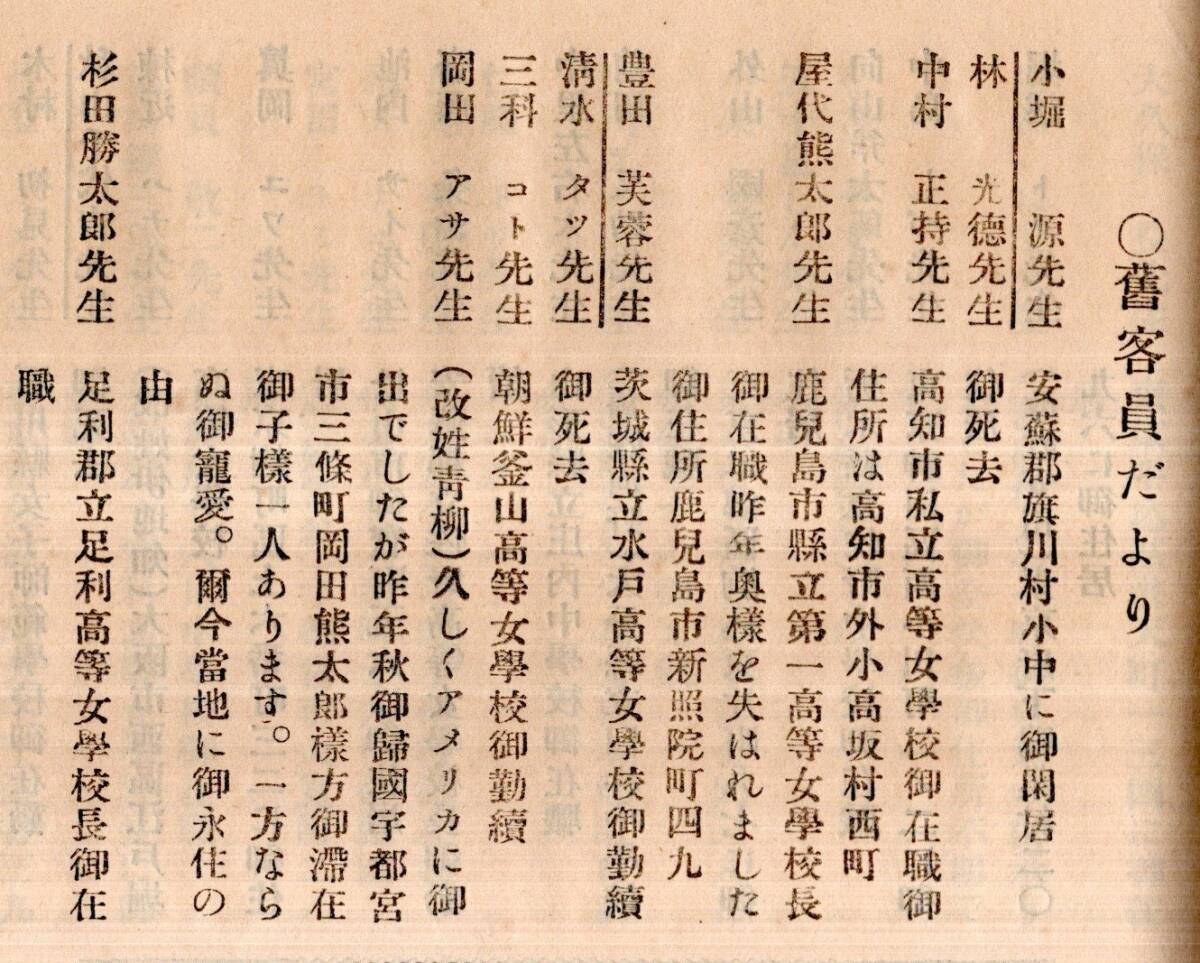 〇舊客員だより
小堀 源先生 安蘇郡旗川村小中に御閑居
林 光德先生 御死去
中村 正持先生 高知市私立高等女學校御在職御
住所は高知市外小高坂村西町
屋代熊太郎先生 鹿兒島市縣立第一高等女學校長
御在職昨年奥樣を失はれました
御住所鹿兒島市新照院町四九
豊田 芙蓉先生 茨城縣立水戸高等女學校御勤續
淸水 タツ先生 御死去
三科 コト先生 朝鮮釜山高等女學校御勤續
岡田 アサ先生 (改姓靑柳)久しくアメリカに御
出でしたが昨年秋御歸國宇都宮
市三條町岡田熊太郎樣方御滯在
御子樣一人あります。一方なら
ぬ御寵愛。爾今當地に御永住の
由
杉田勝太郎先生 足利郡立足利高等女學校長御在
職